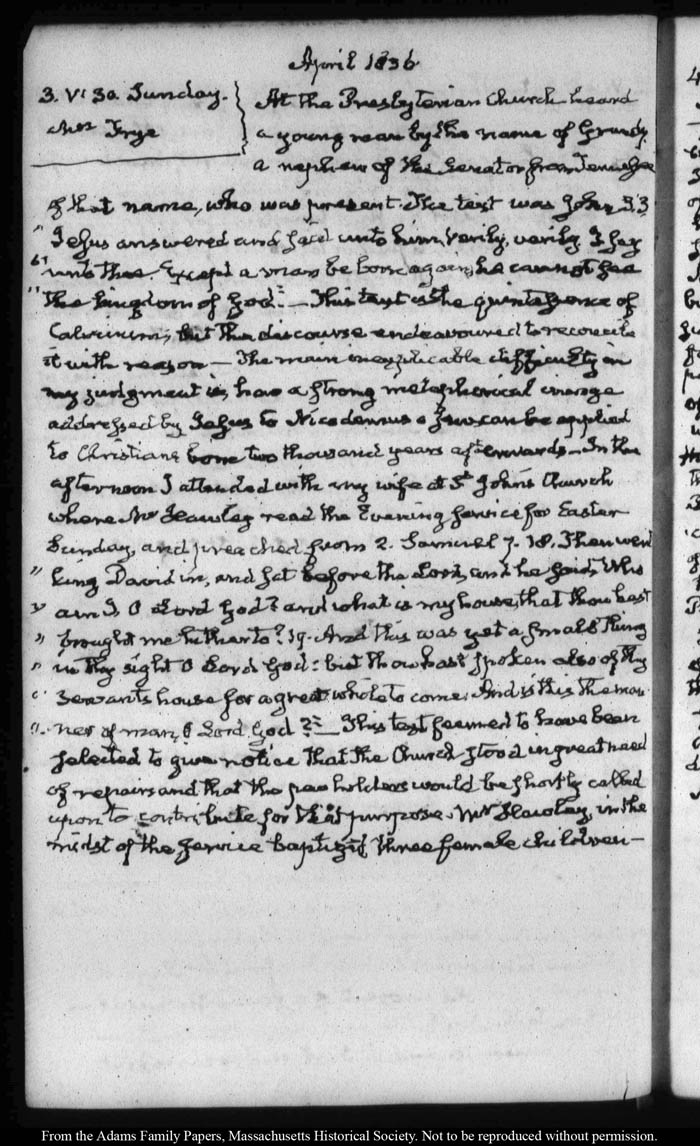 April 1836
3. V: 30. Sunday.
Mrs Frye
At the Presbyterian Church heard
a young man by the name of Grundy.
a nephew of the Senator from Tennessee
of that name, who was present. The text was John 3.3
" Jesus answered and said unto him, Verily, verily, I say
" unto thee. Except a man be born again, he cannot see
" the kingdom of God." — This text is the quintessence of
Calvinism, but the discourse endeavoured to reconcile
it with reason — The main inexplicable difficulty in
my judgment is, how a strong metaphorical image
addressed by Jesus to Nicodemus a Jew can be applied
to Christians born two thousand years afterwards — In the
afternoon I attended with my wife at St. John's Church
where Mr Hawley read the Evening service for Easter
Sunday, and preached from 2. Samuel 7. 18. Then went
" king David in, and sat before the Lord, and he said, Who
" am I, O Lord God? and what is my house, that thou hast
" brought me hitherto? 19. And this was yet a small thing
" in thy sight O Lord God: but thou hast spoken also of thy
" servants house for a great while to come. And is this the man-
" ner of man, O Lord God?" — This text seemed to have been
selected to give notice that the Church stood in great need
of repairs and that the pew holders would be shortly called
upon to contribute for that purpose. Mr Hawley, in the
midst of the service baptized three female children —
From the Adams Family Papers, Massachusetts Historical Society. Not to be reproduced without permission.